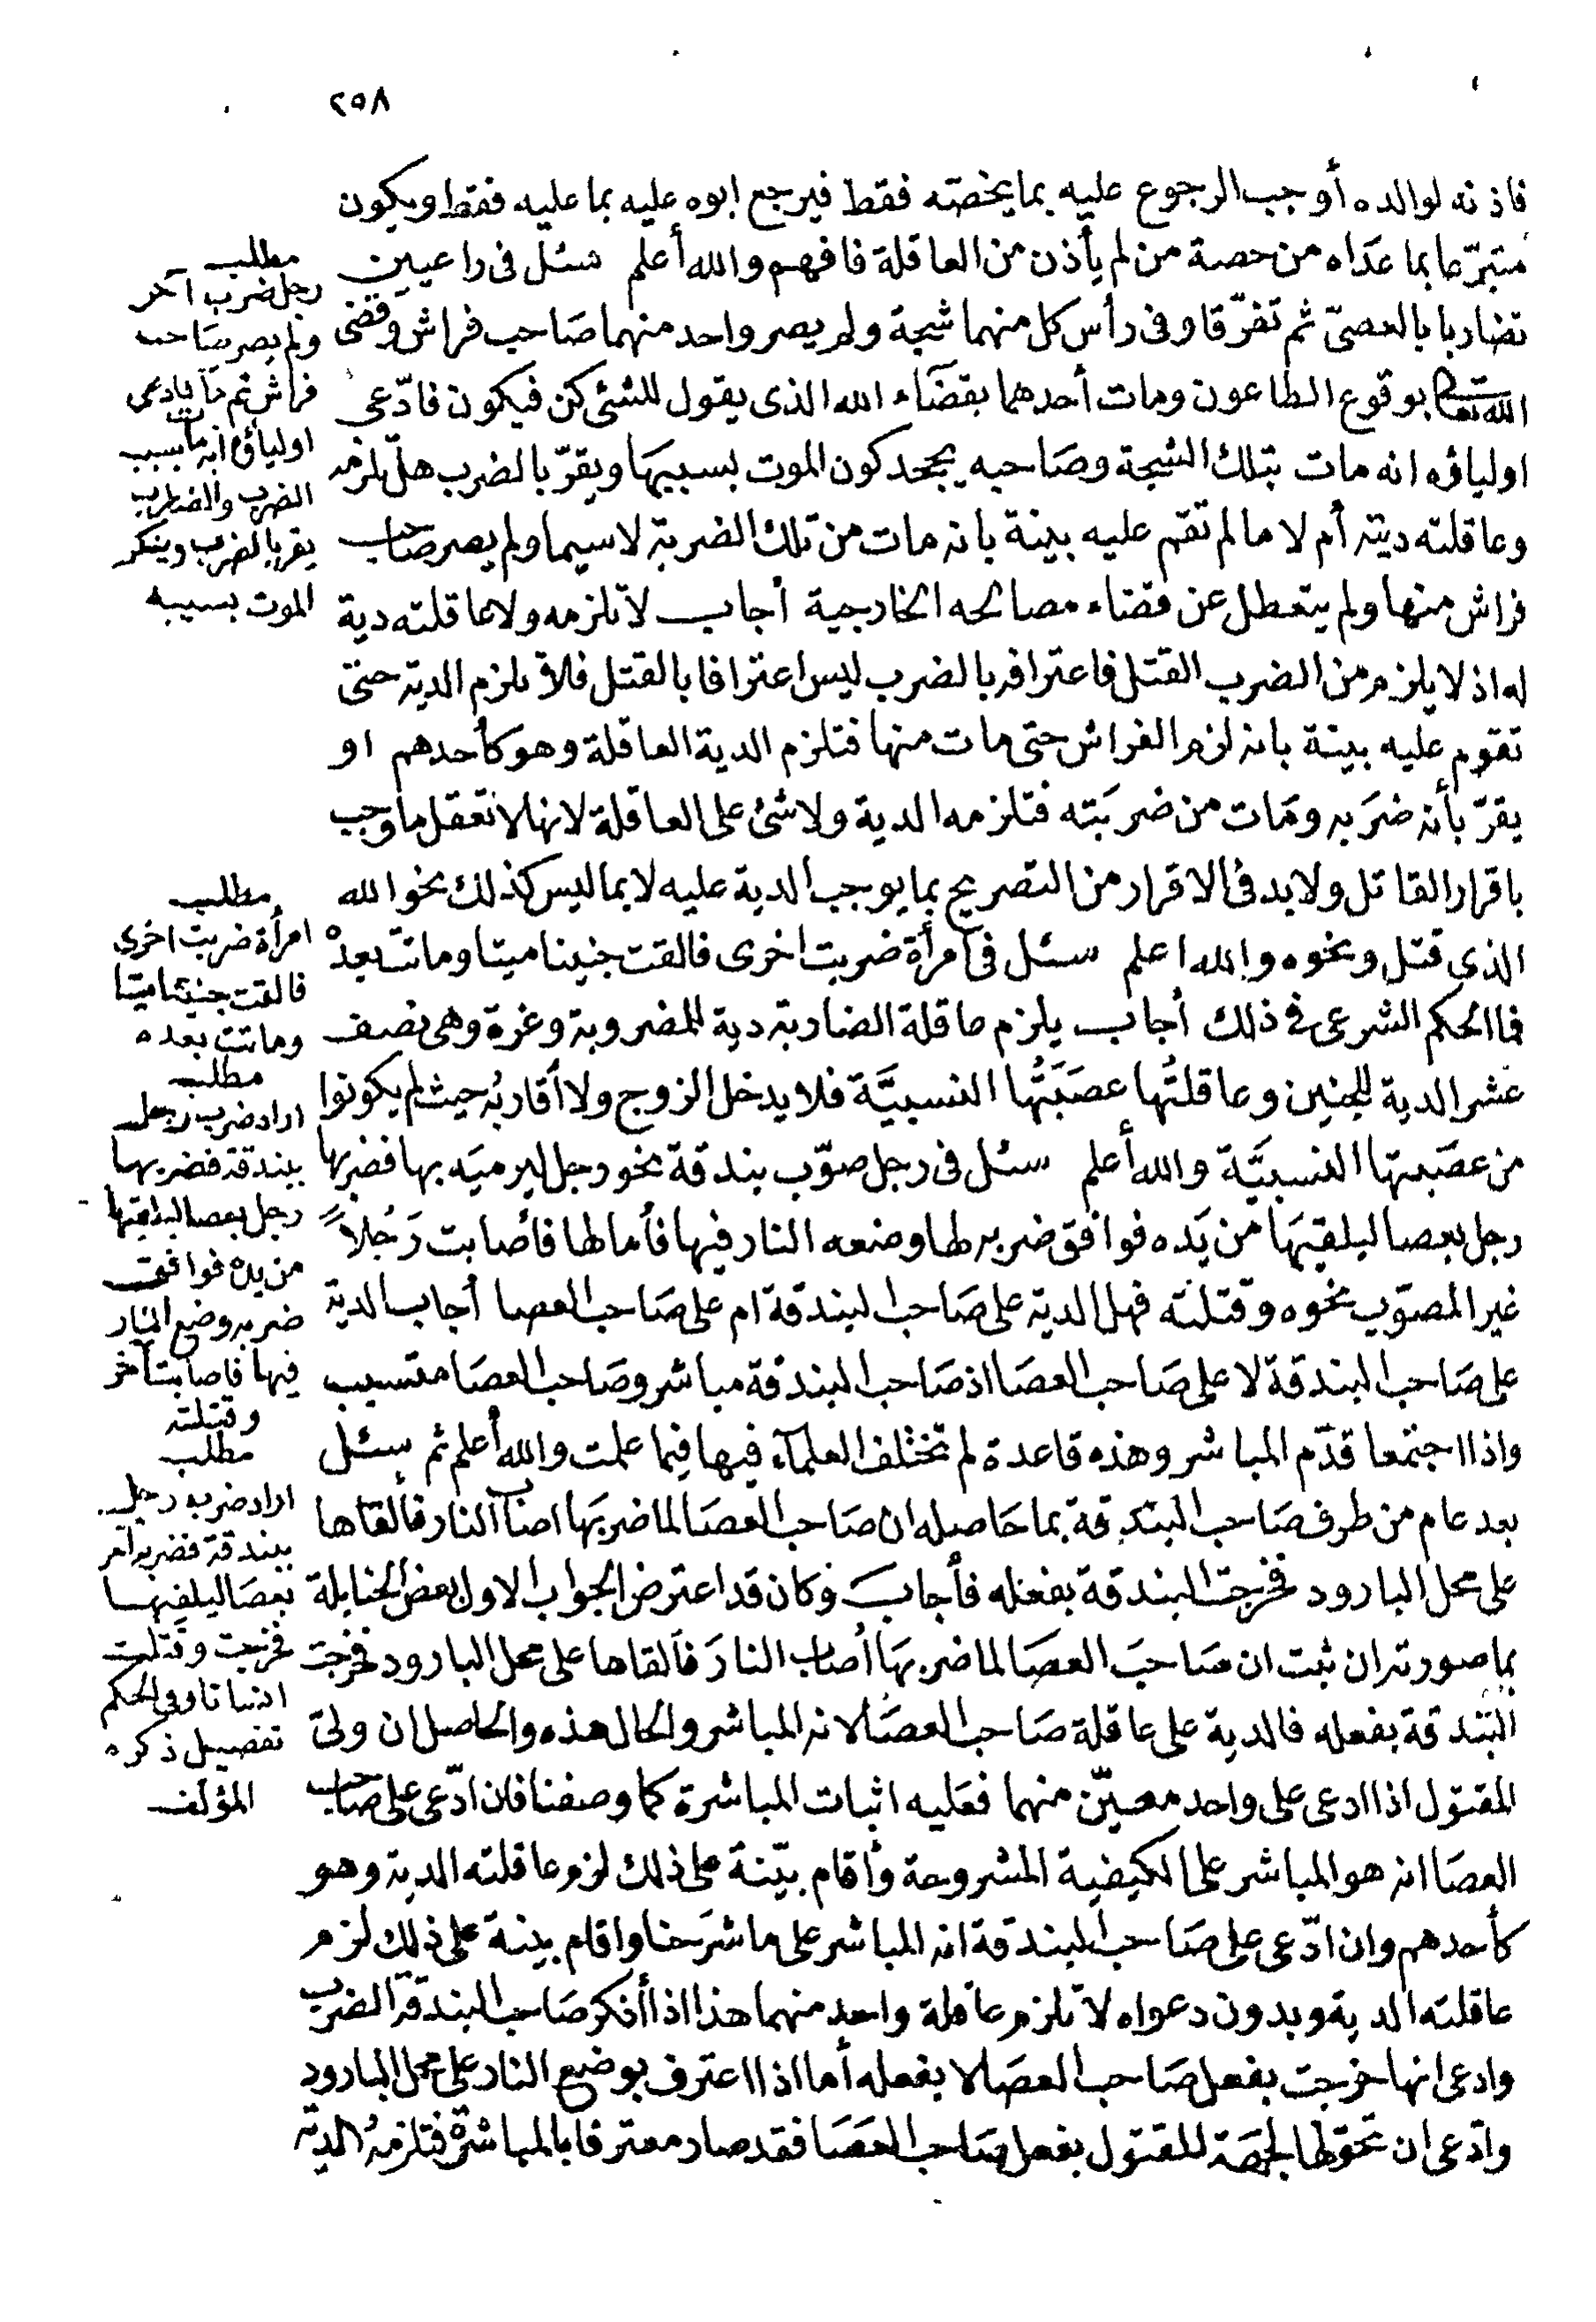 ٢٥٨
فاذنه لوالده أوجب الرجوع عليه بما يخصّه فقط فيرجع ابوه عليه بما عليه فقط ويكون
متبرّعا بما عداه من حصة من لم يأذن من العاقلة فافهم والله أعلم سئل فى راعيين
تضاربا بالعصىّ ثم تفرّقا وفى رأس كل منهما شجة ولم يصر واحد منهما صاحب فراش وقضى
الله تعالى بوقوع الطاعون ومات أحدهما بقضاء الله الذى يقول للشئ كن فيكون فادّعى
اولياؤه انه مات بتلك الشجة وصاحبه يجحد كون الموت بسببها ويقرّ بالضرب هل يلزمه
وعاقلته ديته أم لا ما لم تقم عليه بينة بانه مات من تلك الضربة لاسيما ولم يصر صاحب
فراش منها ولم يتعطل عن قضاء مصالحه الخارجية أجاب لا تلزمه ولا عاقلته دية
له اذ لا يلزم من الضرب القتل فاعترافه بالضرب ليس اعترافا بالقتل فلا تلزم الدية حتى
تقوم عليه بينة بانه لزم الفراش حتى مات منها فتلزم الدية العاقلة وهو كأحدهم او
يقرّ بأنه ضربه ومات من ضربته فتلزمه الدية ولا شئ على العاقلة لانها لا تعقل ما وجب
باقرار القاتل ولابد فى الاقرار من التصريح بما يوجب الدية عليه لا بما ليس كذلك نحو الله
الذى قتل ونحوه والله اعلم سئل فى امرأة ضربت اخرى فالقت جنينا ميتا وماتت بعده
فما الحكم الشرعى فى ذلك أجاب يلزم عاقلة الضاربة دية للمضروبة وغرة وهى نصف
عشر الدية للجنين وعاقلتُها عصَبَتُها النسبيَّة فلا يدخل الزوج ولا أقاربُه حيث لم يكونوا
من عصَبتها النسبيَّة والله أعلم سئل فى رجل صوّب بندقة نحو رجل ليرميَه بها فضربها
رجل بعصا ليلقيَها من يَده فوافق ضربه لها وضعه النار فيها فأمالها فأصابت رَجُلاً
غير المصوّب نحوه وقتلته فهل الدية على صاحب البندقة ام على صاحب العصا أجاب الدية
على صاحب البندقة لا على صاحب العصا اذ صاحب البندقة مباشر وصاحب العصا متسبب
واذا اجتمعا قدّم المباشر وهذه قاعدة لم تختلف العلماء فيها فيما علمت والله أعلم ثم سئل
بعد عام من طرف صاحب البندقة بما حاصله ان صاحب العصا لما ضربها اصاب النار فألقاها
على محل البارود فخرجت البندقة بفعله فأجاب وكان قد اعترض الجواب الاول بعض الحنابلة
بما صورته ان ثبت ان صاحبَ العصا لما ضربها أصاب النارَ فألقاها على محل البارود فخرجت
البندقة بفعله فالدية على عاقلة صاحب العصا لانه المباشر والحال هذه والحاصل ان ولىّ
المقتول اذا ادعى على واحد معيّن منهما فعليه اثبات المباشرة كما وصفنا فان ادّعى على صاحب
العصا انه هو المباشر على الكيفية المشروحة وأقام بيّنة على ذلك لزم عاقلته الدية وهو
كأحدهم وان ادّعى على صاحب البندقة انه المباشر على ما شرَحنا واقام بينة على ذلك لزم
عاقلته الدية وبدون دعواه لا تلزم عاقلة واحد منهما هذا اذا أنكر صاحب البندقة الضرب
وادعى انها خرجت بفعل صاحب العصا لا بفعله أما اذا اعترف بوضع النار على محل البارود
وادّعى ان تحوّلها لجهة للمقتول بفعل صاحب العصا فقد صار معترفا بالمباشرة فتلزمه الدية
مطلب
رجل ضرب آخر
ولم يصر صاحب
فراش ثم مات فادعى
اولياؤه انه مات بسبب
الضرب والضارب
يقر بالضرب وينكر
الموت بسببه
مطلب
امرأة ضربت اخرى
فالقت جنينا ميتا
وماتت بعده
مطلب
اراد ضرب رجل
ببندقة فضربها
رجل بعصا ليلقيها
من يده فوافق
ضربه وضع النار
فيها فاصابت آخر
وقتلته
مطلب
اراد ضرب رجل
ببندقة فضربه آخر
بعصا ليلقيها
فخرجت وقتلت
انسانا وفى الحكم
تفصيل ذكره
المؤلف